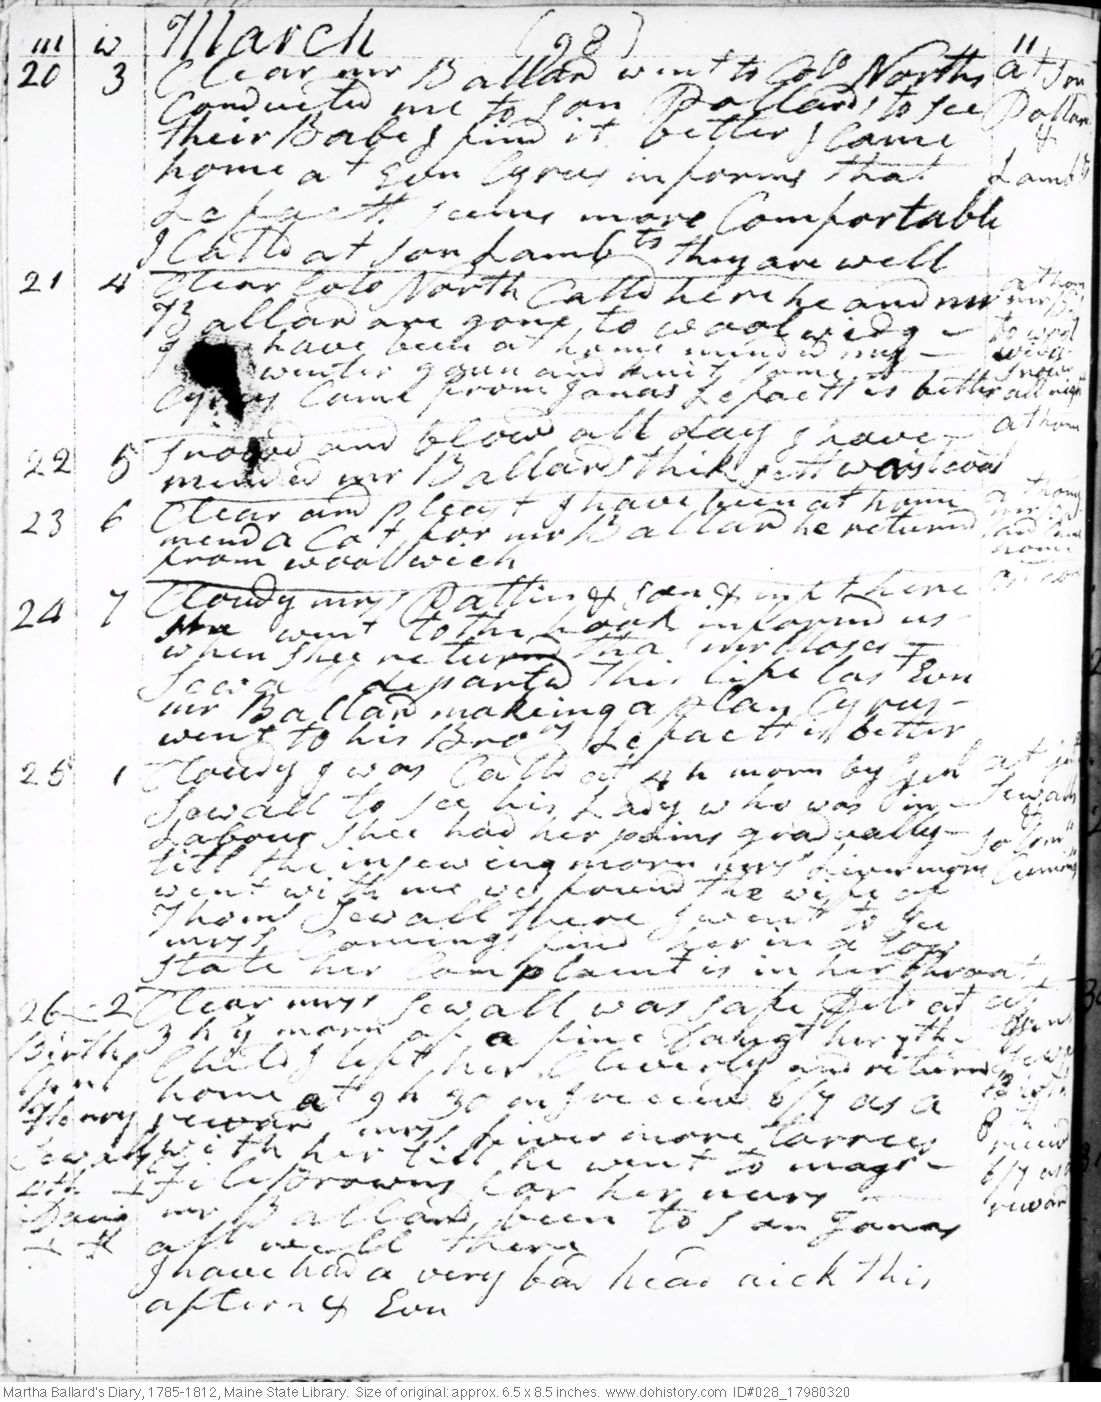 m w March (98) 11
20 3 Clear mr Ballard went to Colo Norths
Conducted me to Son Pollards to see
their Babe I find it better I came
home at Evn Cyrus informs that
Lepactt seems more Comfortable
I Calld at son Lambts they are well
at Son
Pollard
&
Lambts
21 4 Clear Colo North Calld here he and mr
Ballard are gone to woolwidg
I have been at home minded my
winter goun and knit some
Cyrus Came from Jonas Lepactt is better
at hom
mr Bld
to wool
widg
snow
all night
22 5 Snowd and blow all day I have
mended mr Ballards thik
at home
23 6 Clear and pleast I have been at home
mend a Cot for mr Ballard he returnd
from woollwich
at home
mr Bd
home
24 7 Cloudy mrss Pattin & son & inft here
shee went to the hook informd us
when shee returnd tha mr Moses
Sewall departed this life last Evn
mr Ballard makeing a plan Cyrus
went to his Bro rs Lepactt is better
at home
25 1 Cloudy I was Calld at 4 h morn by Genl
Sewall to see his Lady who was in
Labour shee had her pains gradually
till the insewing morn mrss Livermore
went with me we found the wife of
Thoms Sewall there I went to see
mrss Comings find her in a low
state her Complaint is in her throat
at Genl
Sewalls
&
Solomn
Cumings
26 2 Clear mrss Sewall was safe Deld at
3 h y morn of a fine Daughter y the
Child I left her Cleverly and returnd
home at 9 h 30 m I receivd 6/7 as a
reward mrss Livermore tarries
with her till he went to mags
File Browns for her nurs
mr Ballard been to son Jonas
all well there
I have had a very bad head aick this
aftern & Evn
Birth
Genl
Henry
Sewalls
4th
at
Genl
Sewals
Birth
8th
receivd
6/7 as a
reward
Martha Ballard's Diary, 1785-1812, Maine State Library. Size of original: approx. 6.5 x 8.5 inches. www.dohistory.com ID#028_17980320